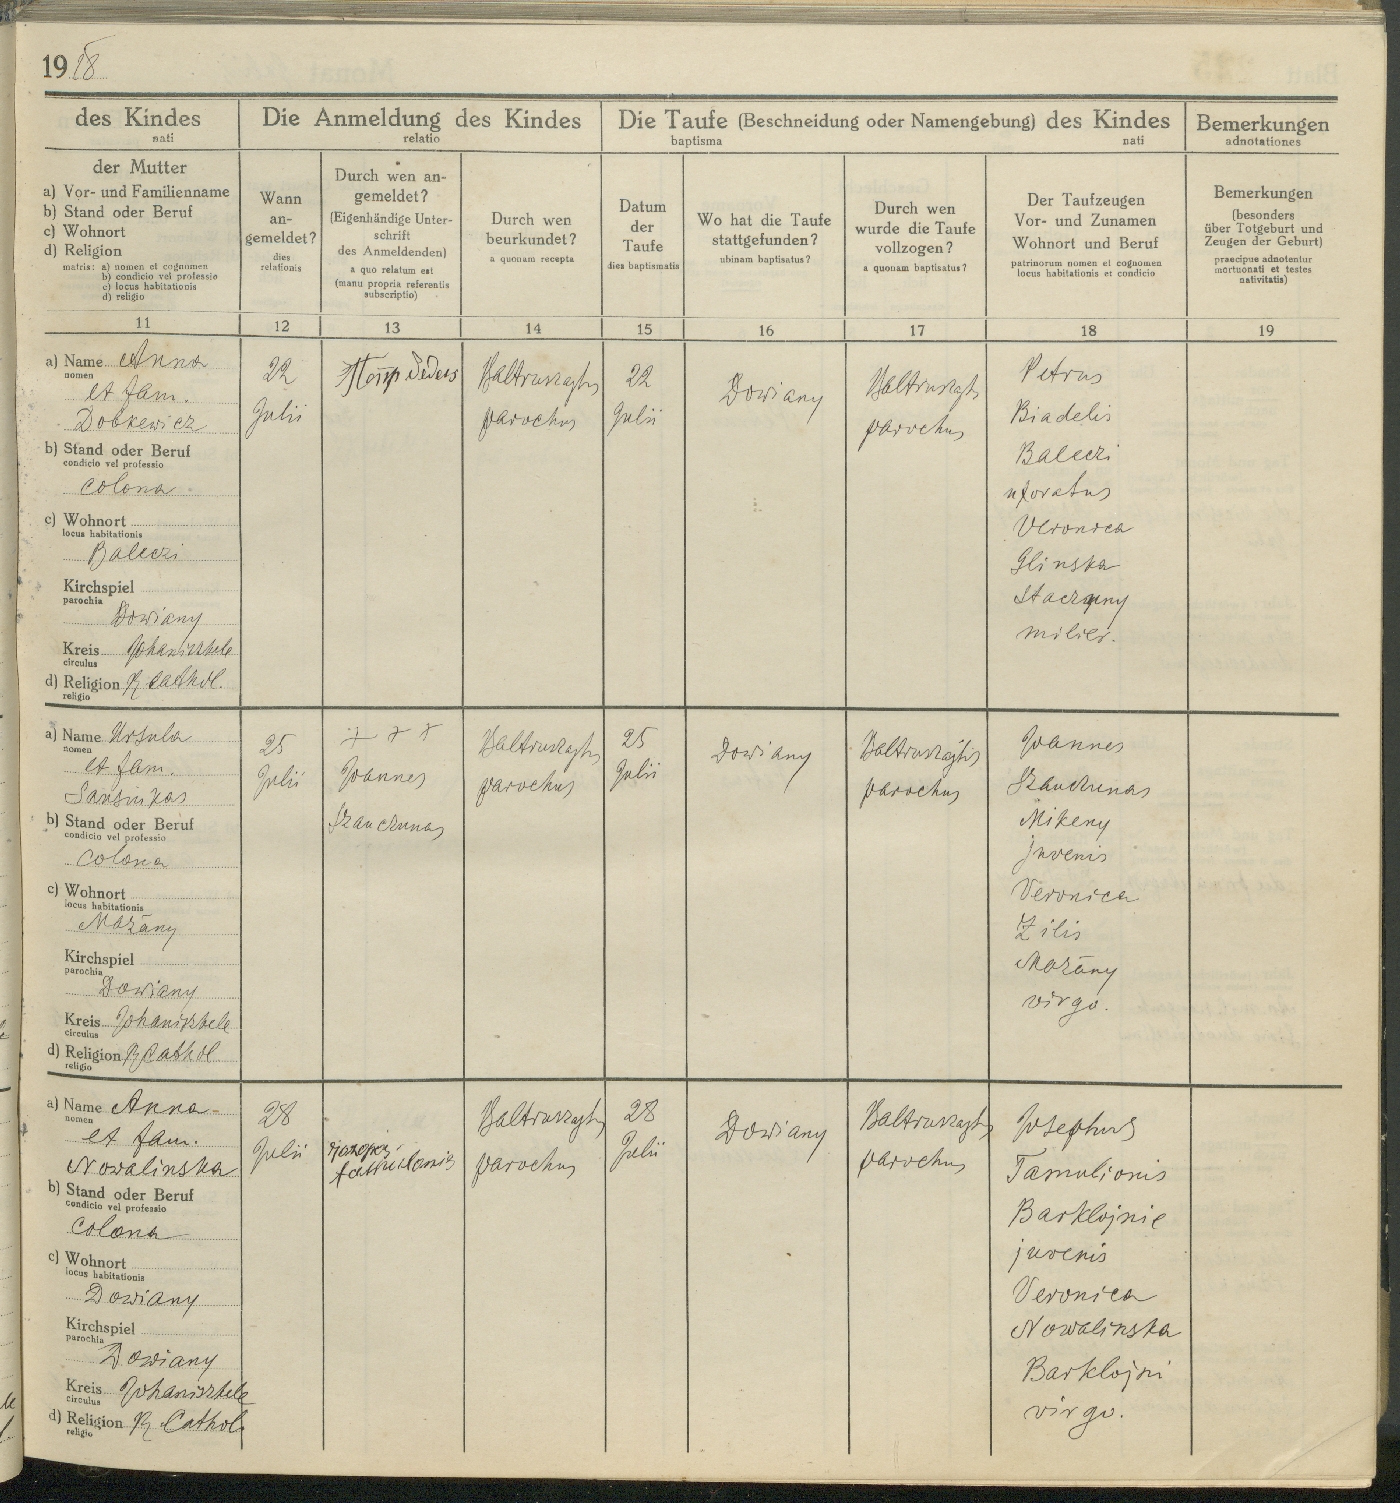 1918
des Kindes
nati
Die Anmeldung des Kindes
relatio
Die Taufe (Beschneidung oder Namengebung) des Kindes
baptisma nati
Bemerkungen
adnotationes
der Mutter
a) Vor- und Familienname
b) Stand oder Beruf
c) Wohnort
d) Religion
matris: a) nomen et cognomen
b) condicio vel professio
c) locus habitationis
d) religio
Wann
an-
gemeldet?
dies
relationis
Durch wen an-
gemeldet?
(Eigenhändige Unter-
schrift
des Anmeldenden)
a quo relatum est
(manu propria referentis
subscriptio)
Durch wen
beurkundet?
a quonam recepta
Datum
der
Taufe
dies baptismatis
Wo hat die Taufe
stattgefunden?
ubinam baptisatus?
Durch wen
wurde die Taufe
vollzogen?
a quonam baptisatus?
Der Taufzeugen
Vor- und Zunamen
Wohnort und Beruf
patrinorum nomen et cognomen
locus habitationis et condicio
Bemerkungen
(besonders
über Totgeburt und
Zeugen der Geburt)
praecipue adnotentur
mortuonati et testes
nativitatis)
11 12 13 14 15 16 17 18 19
a) Name Anna
nomen
et fam.
Dobkewicz
b) Stand oder Beruf
condicio vel professio
colona
c) Wohnort
locus habitationis
Baleczi
Kirchspiel
parochia
Dowiany
Kreis Johaniszkele
circulus
d) Religion R Cathol.
religio
22
Julii
Baltruszajtys
parochus
22
Julii
Dowiany
Baltruszajtys
parochus
Petrus
Biadelis
Baleczi
uxoratus
Veronica
Glinska
Staczuny
milier.
a) Name Ursula
nomen
et fam.
Sansinkas
b) Stand oder Beruf
condicio vel professio
colona
c) Wohnort
locus habitationis
Mozany
Kirchspiel
parochia
Dowiany
Kreis Johaniszkele
circulus
d) Religion R Cathol
religio
25
Julii
+ + +
Joannes
Szauczunas
Baltruszajtys
parochus
25
Julii
Dowiany
Baltruszajtis
parochus
Joannes
Szauczunas
Mikeny
juvenis
Veronica
Zilis
Mozany
virgo.
a) Name Anna
nomen
et fam.
Nowalinska
b) Stand oder Beruf
condicio vel professio
colona
c) Wohnort
locus habitationis
Dowiany
Kirchspiel
parochia
Dowiany
Kreis Johaniszkele
circulus
d) Religion R Cathol
religio
28
Julii
Baltruszajtys
parochus
28
Julii
Dowiany
Baltruszajtys
parochus
Josephus
Tamulionis
Barklojnie
juvenis
Veronica
Nowalinska
Barklojni
virgo.